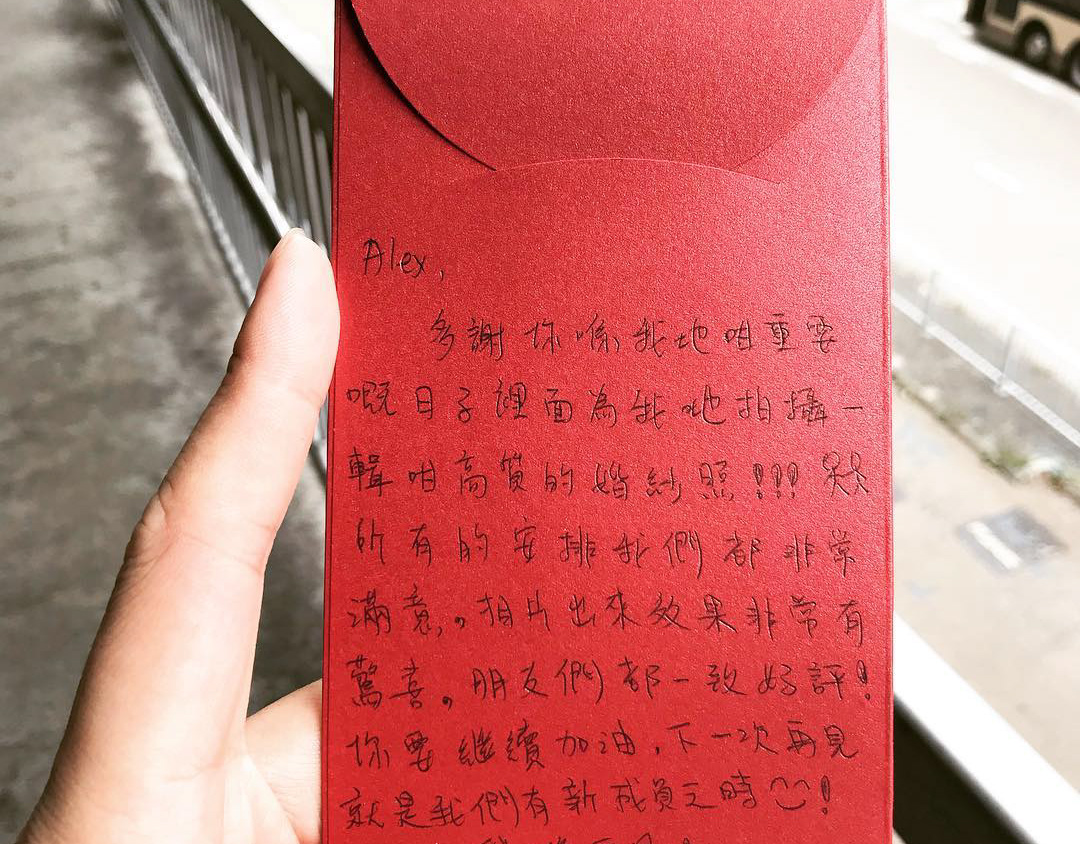 Alex,
多謝你喺我地咁重要
嘅日子裡面為我哋拍攝一
輯咁高質的婚紗照!!!
所有的安排我們都非常
滿意。拍片出來效果非常有
驚喜。朋友們都一致好評!
你要繼續加油,下一次再見
就是我們有新成員之時!